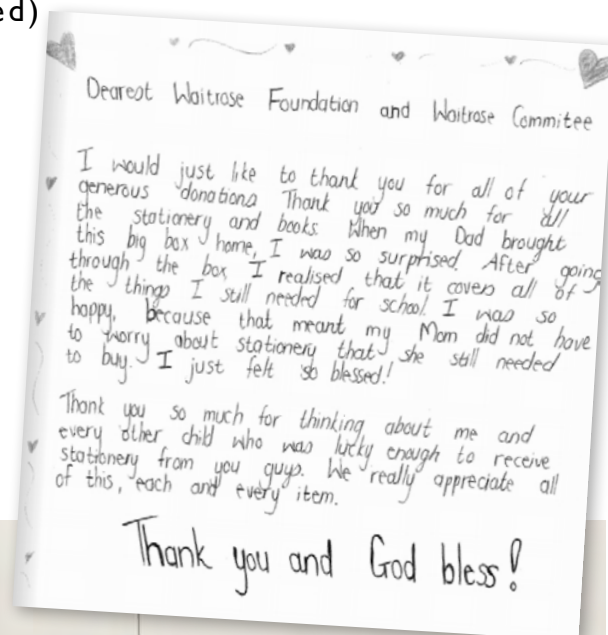 ed)
Dearest Waitrose Foundation and Waitrose Commitee
I would just like to thank you for all of your
generous donations Thank you so much for all
the stationery and books. When my Dad brought
this big box home, I was so surprised. After going
through the box I realised that it covers all of
the things I still needed for school. I was so
happy, because that meant my Mom did not have
to worry about stationery that she still needed
to buy. I just felt so blessed!
Thank you so much for thinking about me and
every other child who was lucky enough to receive
stationery from you guys. We really appreciate all
of this, each and every item.
Thank you and God bless!